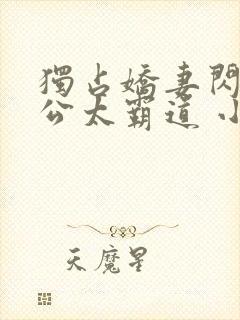 獨占嬌妻閃
公太霸道 小
天魔星